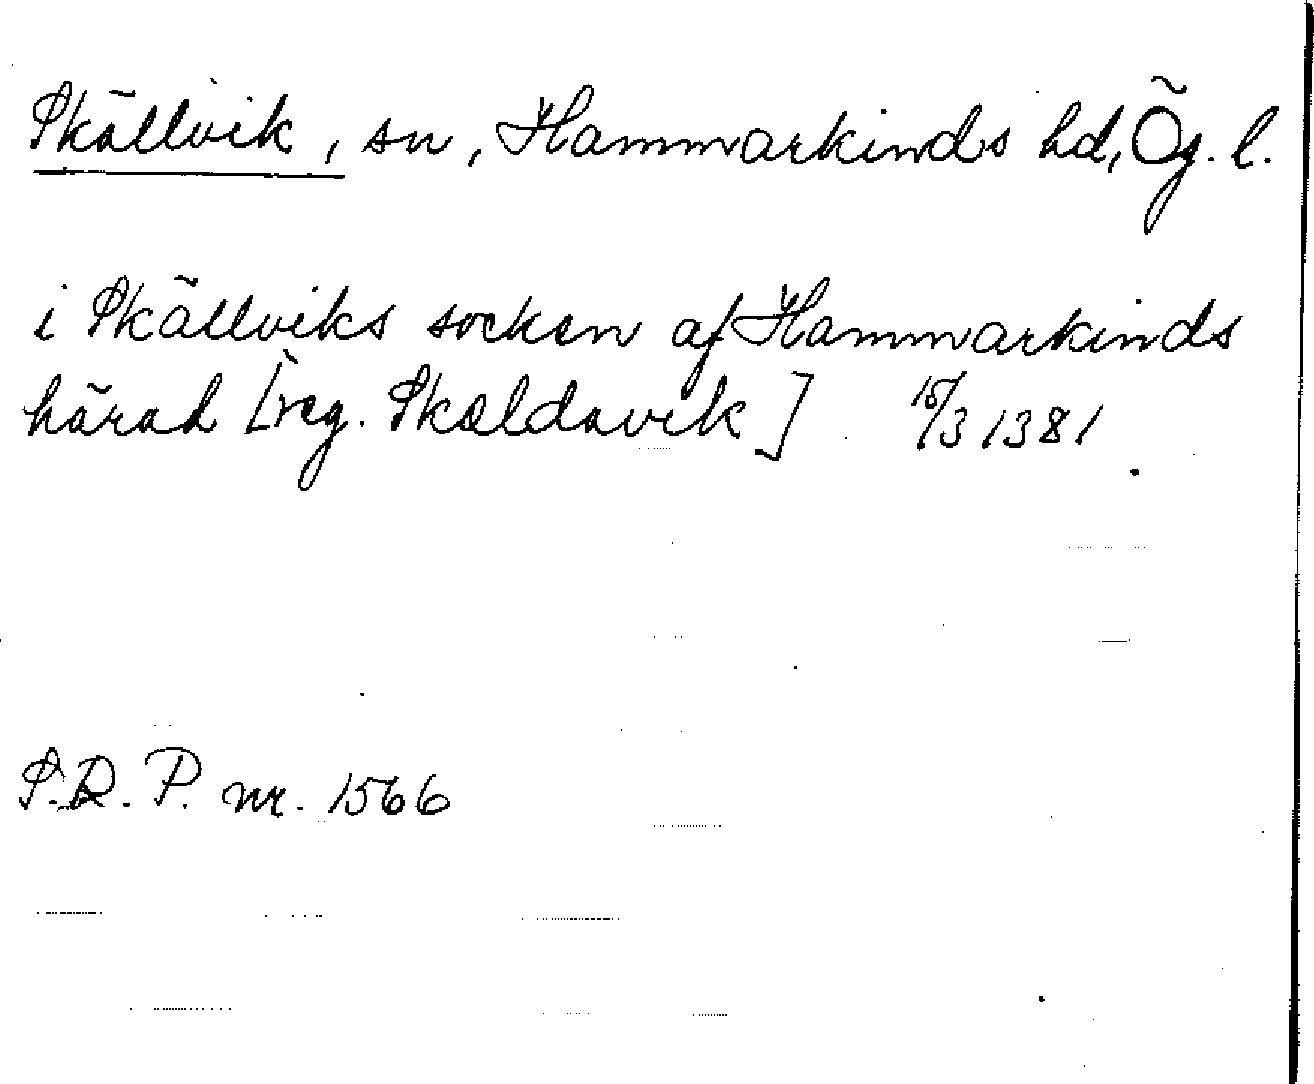 Skällvik, sn, Hammarkinds hd, Ög. l.
i Skällviks socken af Hammarkinds
härad [reg. Skældavik] 15/3 1381
S.R.P. nr. 1566